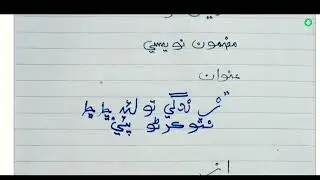 مضمون نويسي
عنوان
"زندگي تو لئہ ڇا ڇا
نٿو ڪرڻو پئي"
از